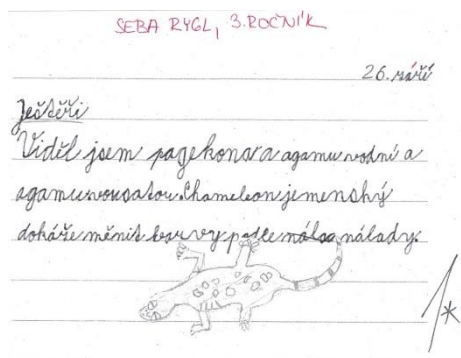 SEBA RYGL, 3. ROČNÍK
26. září
Ještěři
Viděl jsem pagekona a agamu vodní a
agamu vousatou. Chameleon jemenský
dokáže měnit barvy podle nálady.
1*